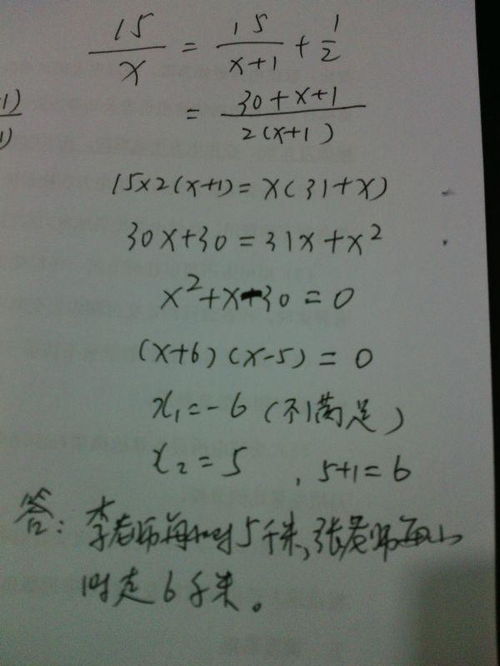 15/x = 15/(x+1) + 1/2
= (30+x+1)/(2(x+1))
15×2(x+1)=x(31+x)
30x+30=31x+x²
x²+x-30=0
(x+6)(x-5)=0
x₁=-6(不满足)
x₂=5 , 5+1=6
答:李老师每小时5千米,张老师每小
时走6千米。